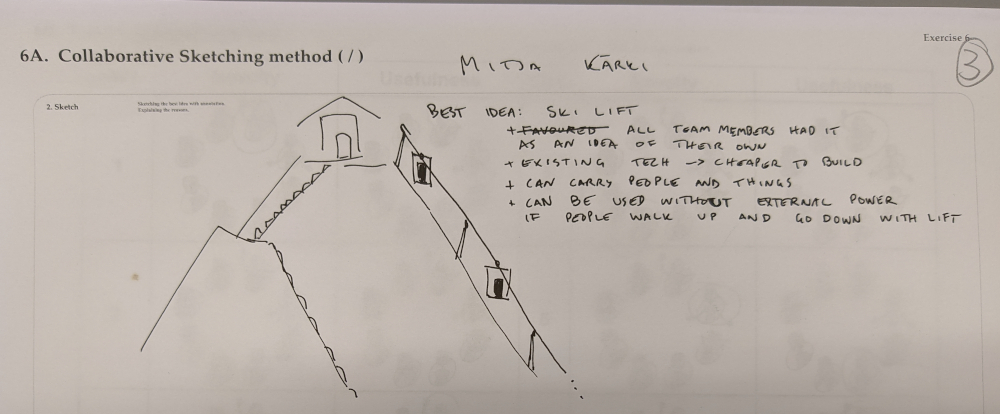 Exercise 6
3
6A. Collaborative Sketching method ( / )
MITJA KÄRKI
2. Sketch
Sketching the best idea with annotation.
Explaining the reasons.
BEST IDEA: SKI LIFT
+ FAVOURED ALL TEAM MEMBERS HAD IT
AS AN IDEA OF THEIR OWN
+ EXISTING TECH -> CHEAPER TO BUILD
+ CAN CARRY PEOPLE AND THINGS
+ CAN BE USED WITHOUT EXTERNAL POWER
IF PEOPLE WALK UP AND GO DOWN WITH LIFT